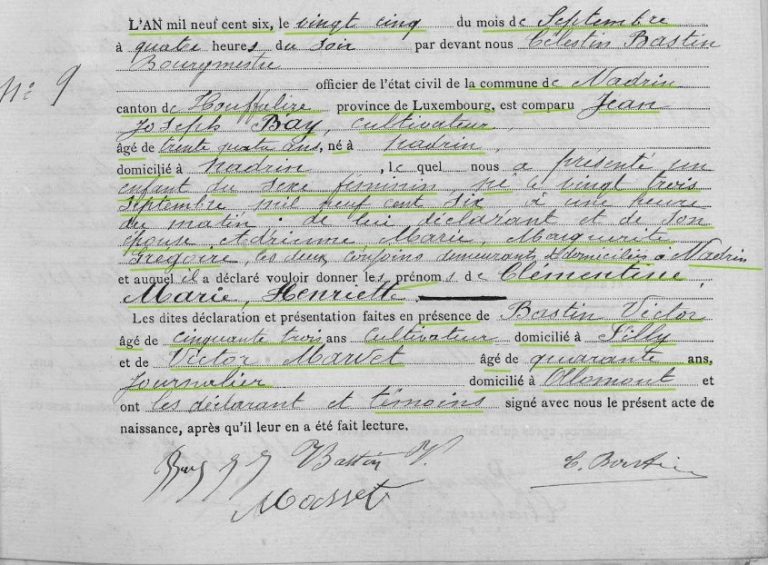 L'AN mil neuf cent six, le vingt cinq du mois de Septembre
à quatre heures du soir par devant nous Célestin Bastin
Bourgmestre
officier de l'état civil de la commune de Nadrin
N° 9
canton de Houffalize province de Luxembourg, est comparu Jean
Joseph Bay, cultivateur,
âgé de trente quatre ans, né à Nadrin,
domicilié à Nadrin, le quel nous a présenté un
enfant du sexe féminin né le vingt trois
septembre mil neuf cent six à une heure
du matin : de lui déclarant et de son
épouse Adrienne Marie, Marguerite
Gregoire, les deux conjoins demeurants & domiciliés à Nadrin
et auquel il a déclaré vouloir donner les prénoms de Clementine,
Marie, Henriette
Les dites déclaration et présentation faites en présence de Bastin Victor
âgé de cinquante trois ans cultivateur domicilié à Filly
et de Victor Marvet âgé de quarante ans,
Journalier domicilié à Ollomont et
ont les déclarant et témoins signé avec nous le présent acte de
naissance, après qu'il leur en a été fait lecture.
Bay JJ Bastin V. C. Bastin